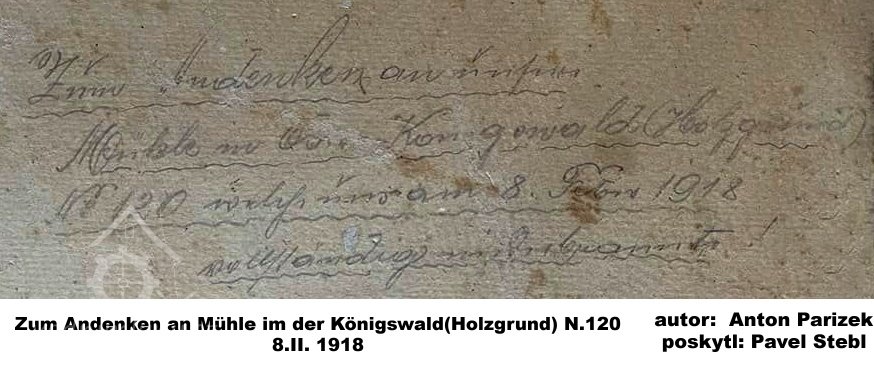 Zum Andenken an unsere
Mühle in Ober Königswald (Holzgrund)
N: 120 welch am 8. Feber 1918
vollständig niederbrannte!
Zum Andenken an Mühle im der Königswald(Holzgrund) N.120
8.II. 1918
autor: Anton Parizek
poskytl: Pavel Stebl